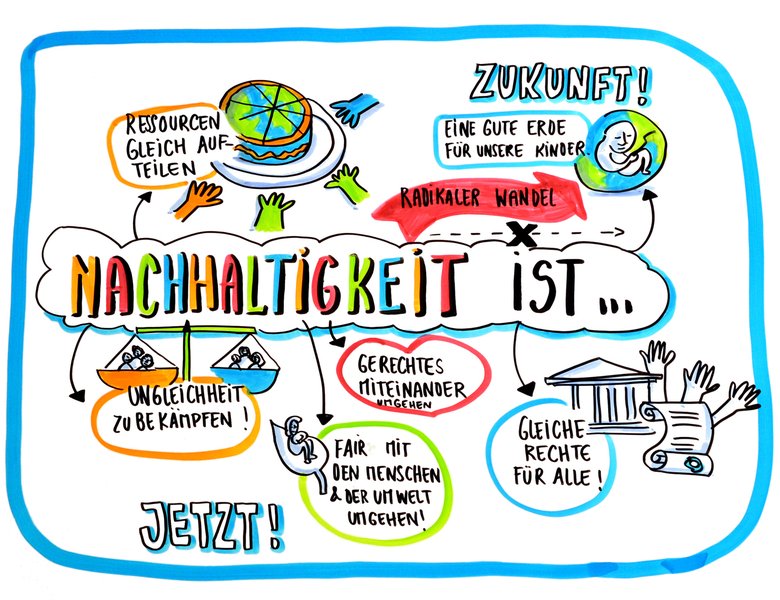 ZUKUNFT!
RESSOURCEN
GLEICH AUF-
TEILEN
EINE GUTE ERDE
FÜR UNSERE KINDER
RADIKALER WANDEL
NACHHALTIGKEIT IST...
UNGLEICHHEIT
ZU BEKÄMPFEN!
GERECHTES
MITEINANDER
UMGEHEN
FAIR MIT
DEN MENSCHEN
& DER UMWELT
UMGEHEN!
GLEICHE
RECHTE
FÜR ALLE!
JETZT!